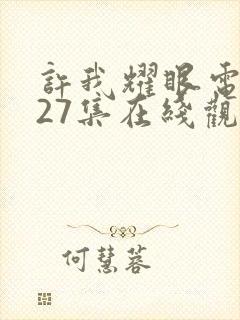 許我耀眼電
27集在綫觀
何慧蓉